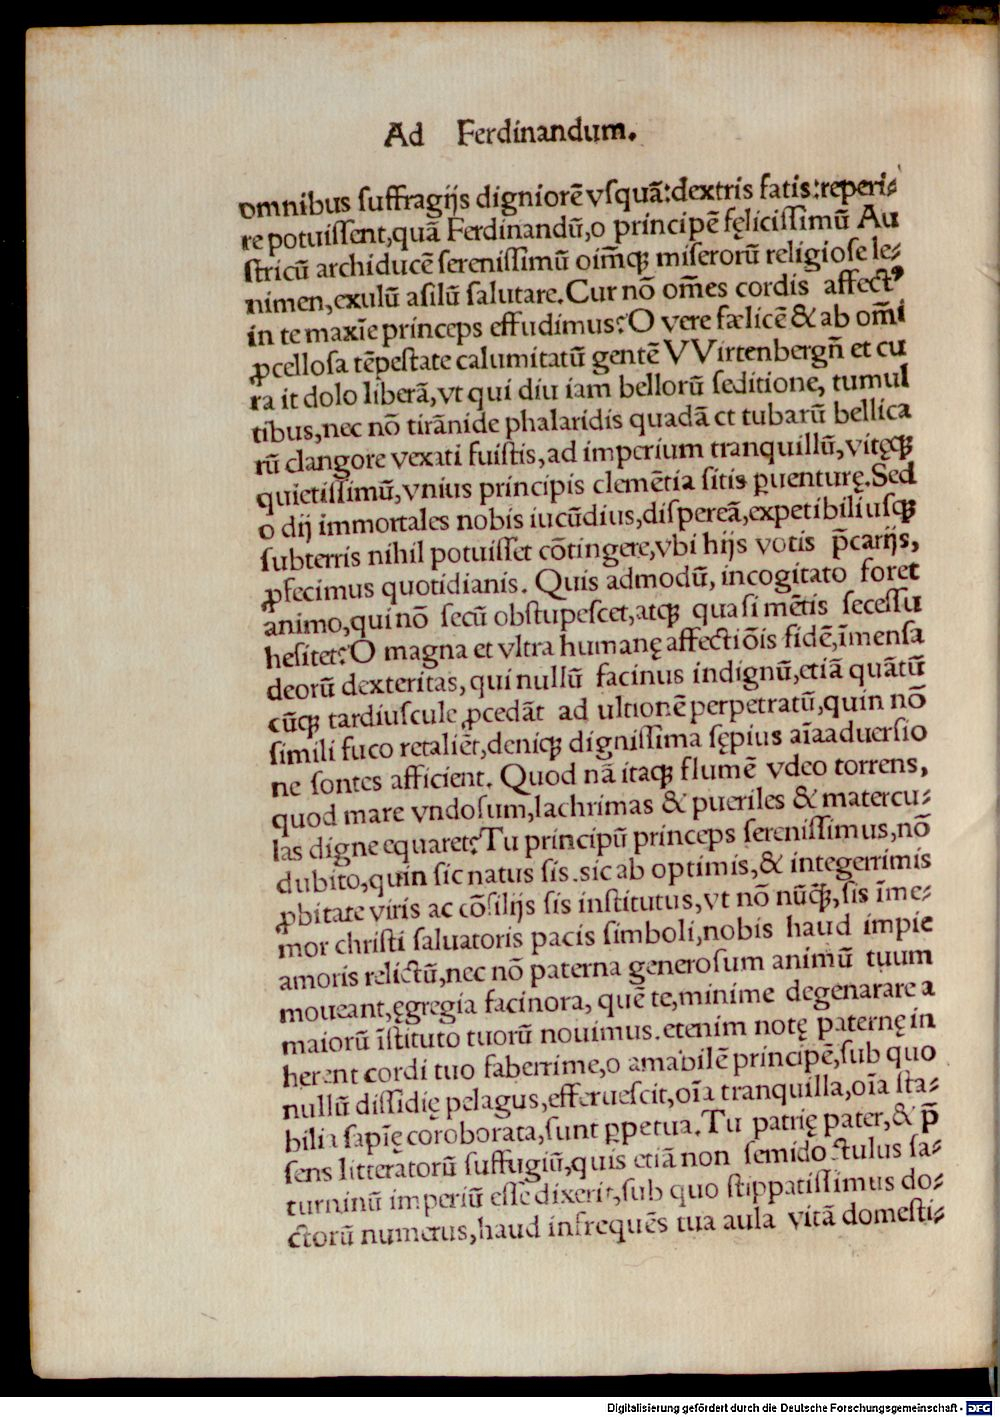 Ad Ferdinandum.
omnibus ſuffragijs digniorē vſquā:dextris fatis:reperi⸗
re potuiſſent,quā Ferdinandū,o principē fęliciſſimū Au
ſtricū archiducē ſereniſſimū oim̄qꝫ miſerorū religioſe le⸗
nimen,exulū aſilū ſalutare.Cur nō om̄es cordis affectꝰ
in te maxīe princeps effudimus:O vere fælicē & ab om̄i
ꝓcelloſa tēpeſtate calumitatū gentē VVirtenbergn̄ et cu
ra it dolo liberā,vt qui diu iam bellorū ſeditione, tumul
tibus,nec nō tirānide phalaridis quadā ct tubarū bellica
rū clangore vexati fuiſtis,ad imperium tranquillū,vitęqꝫ
quietiſſimū,vnius principis clemētia ſitis ꝑuenturę.Sed
o dij immortales nobis iucūdius,diſpereā,expetibiliuſqꝫ
ſubterris nihil potuiſſet cōtingere,vbi hijs votis p̄carijs,
ꝓfecimus quotidianis. Quis admodū, incogitato foret
animo,qui nō ſecū obſtupeſcet,atqꝫ quaſi mētis ſeceſſu
heſitet:O magna et vltra humanę affectiōis fidē,īmenſa
deorū dexteritas,qui nullū facinus indignū,etiā quātū
cūqꝫ tardiuſcule ꝓcedāt ad ultionē perpetratū,quin nō
ſimili fuco retaliēt,deniqꝫ digniſſima ſępius aīaaduerſio
ne ſontes afficient. Quod nā itaqꝫ flumē vdeo torrens,
quod mare vndoſum,lachrimas & pueriles & matercu⸗
las digne equaret:Tu principū princeps ſereniſſimus,nō
dubito,quin ſic natus ſis.sic ab optimis,& integerrimis
ꝓbitate viris ac cōſilijs ſis inſtitutus,vt nō nūqꝫ̄,ſis īme⸗
mor chriſti ſaluatoris pacis ſimboli,nobis haud impie
amoris relictū,nec nō paterna generoſum animū tuum
moueant,ęgregia facinora, quē te,minime degenarare a
maiorū īſtituto tuorū nouimus.etenim notę paternę in
herent cordi tuo faberrime,o amabilē principē,ſub quo
nullū diſſidię pelagus,efferueſcit,oīa tranquilla,oīa ſta⸗
bilia ſapīę coroborata,ſunt ꝑpetua.Tu patrię pater,& p̄
ſens litteratorū ſuffugiū,quis etiā non ſemidoctulus ſa⸗
turninū imperiū eſſe dixerit,ſub quo ſtippatiſſimus do⸗
ctorū numerus,haud infrequēs tua aula vitā domeſti⸗
Digitalisierung gefördert durch die Deutsche Forschungsgemeinschaft - DFG